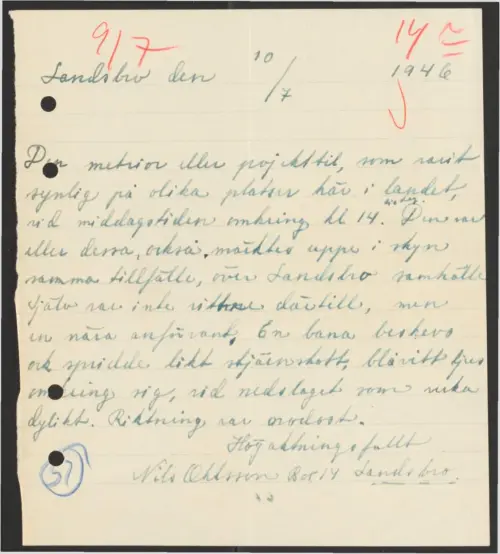 9/7 14
Landsbro den 10/7 1946
Den meteior eller projektil, som varit
synlig på olika platser här i landet,
vid middagstiden omkring kl 14. Den var
eller dessa, också märktes uppe i skyn
samma tillfälle, över Landsbro samhälle
själv var inte vittne därtill, men
en nära anförvant. En bana beskrevs
ock spridde likt stjärnskott, blåvitt ljus
omkring sig, vid nedslaget som
dylikt. Riktning var nordost.
Högaktningsfullt
Nils Ohlsson Box 14 Landsbro.
57